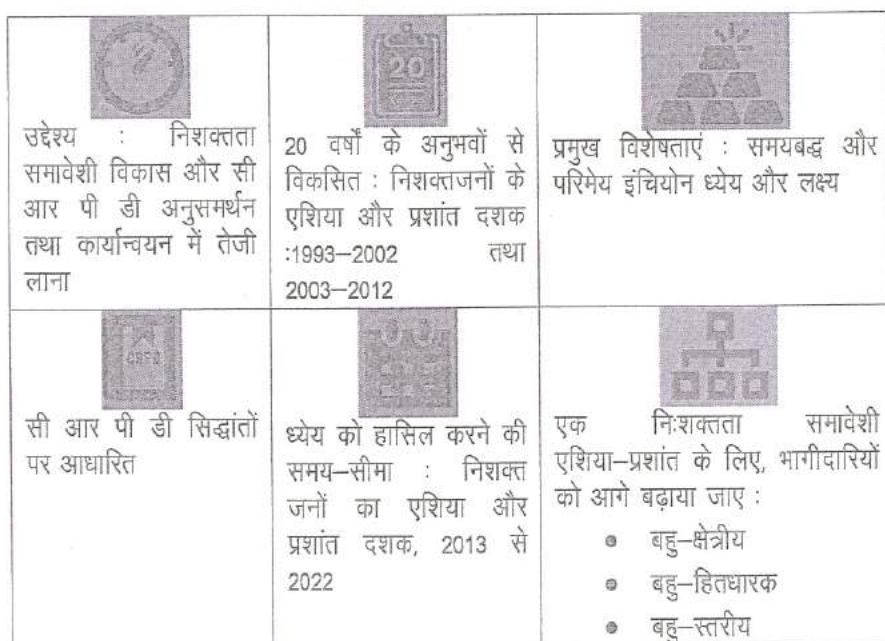 20
उद्देश्य : निशक्तता
समावेशी विकास और सी
आर पी डी अनुसमर्थन
तथा कार्यान्वयन में तेजी
लाना
20 वर्षों के अनुभवों से
विकसित : निशक्तजनों के
एशिया और प्रशांत दशक
:1993–2002 तथा
2003–2012
प्रमुख विशेषताएं : समयबद्ध और
परिमेय इंचियोन ध्येय और लक्ष्य
सी आर पी डी सिद्धांतों
पर आधारित
ध्येय को हासिल करने की
समय–सीमा : निशक्त
जनों का एशिया और
प्रशांत दशक, 2013 से
2022
एक निःशक्तता समावेशी
एशिया–प्रशांत के लिए, भागीदारियों
को आगे बढ़ाया जाए :
• बहु–क्षेत्रीय
• बहु–हितधारक
• बहु–स्तरीय